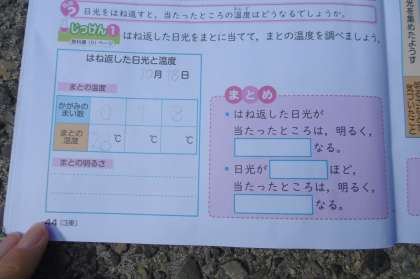 日光をはね返すと、当たったところの温度はどうなるでしょうか。
じっけん1
はね返した日光をまとに当てて、まとの温度を調べましょう。
はね返した日光と温度
10月18日
まとの温度
かがみの
まい数
0 1 3
まとの
温度
℃ ℃ ℃
まとの明るさ
まとめ
はね返した日光が
当たったところは、明るく、
なる。
日光が ほど、
当たったところは、明るく、
なる。
44 (3東)